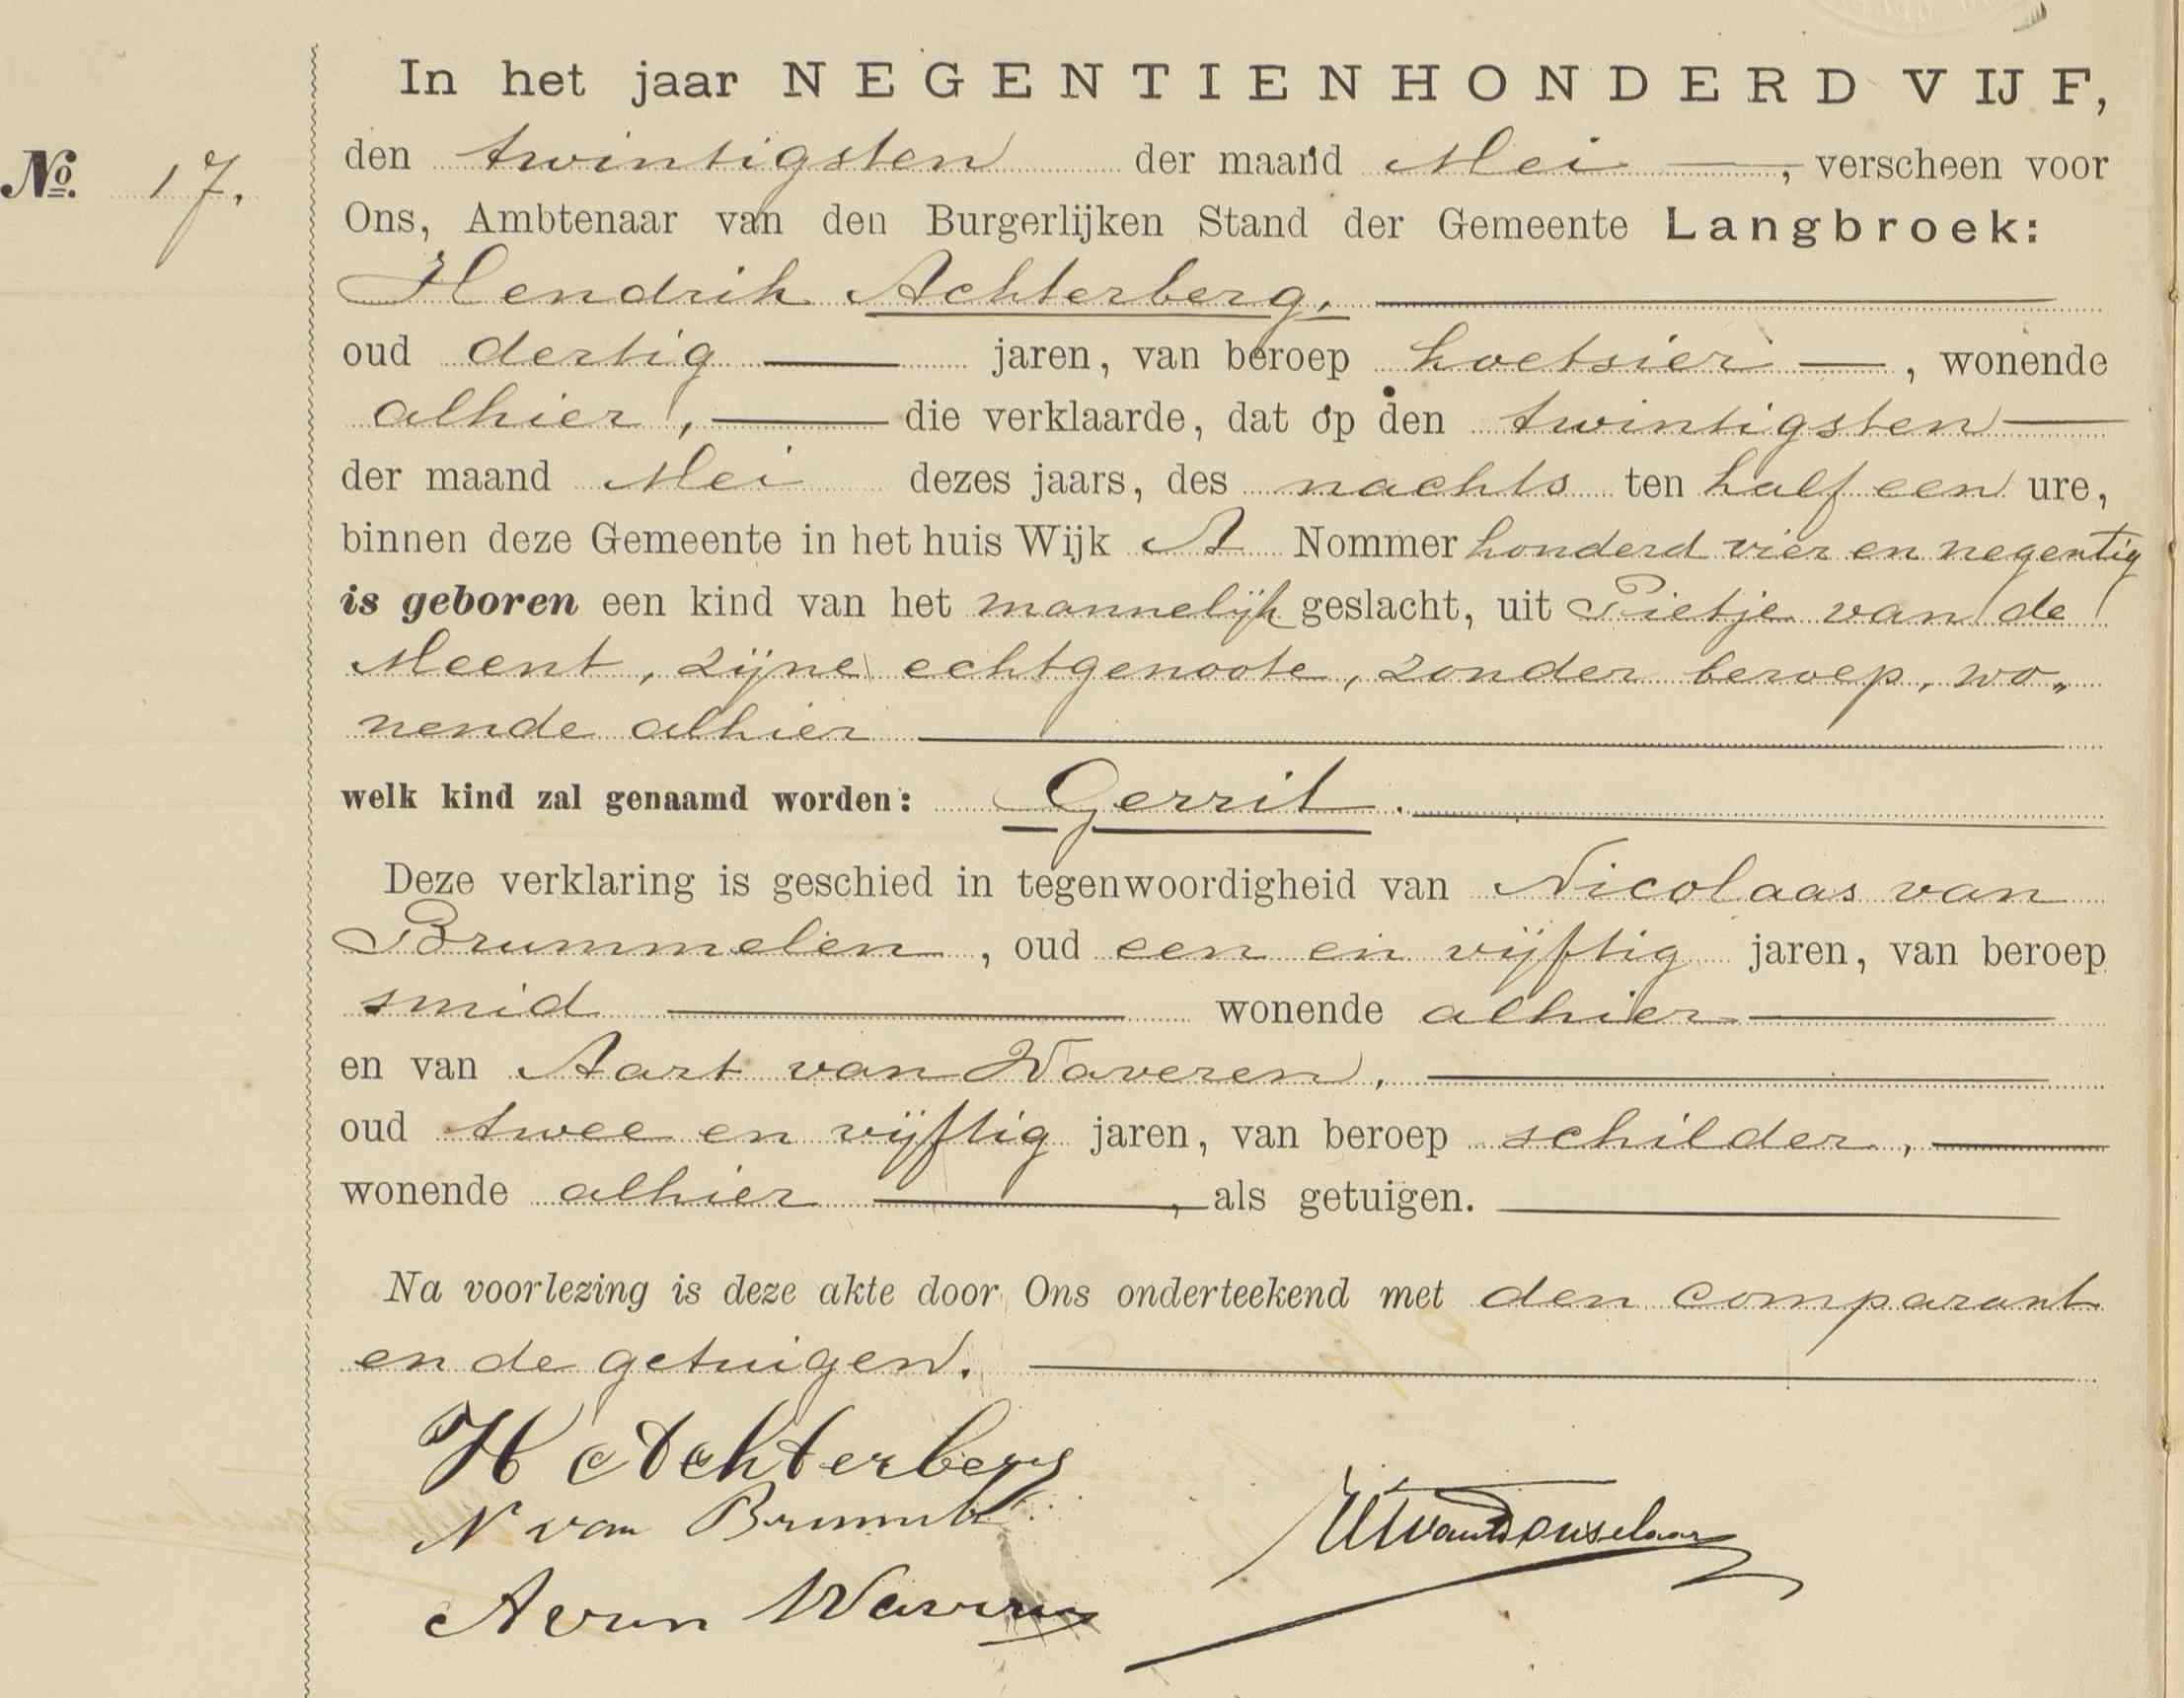 In het jaar NEGENTIENHONDERD VIJF,
No. 17.
den twintigsten der maand Mei, verscheen voor
Ons, Ambtenaar van den Burgerlijken Stand der Gemeente Langbroek:
Hendrik Achterberg,
oud dertig jaren, van beroep koetsier, wonende
alhier, die verklaarde, dat op den twintigsten
der maand Mei dezes jaars, des nachts ten half een ure,
binnen deze Gemeente in het huis Wijk A Nommer honderd vier en negentig
is geboren een kind van het mannelijk geslacht, uit Pietje van de
Meent, zijne echtgenoote, zonder beroep, wo„
nende alhier
welk kind zal genaamd worden: Gerrit.
Deze verklaring is geschied in tegenwoordigheid van Nicolaas van
Brummelen, oud een en vijftig jaren, van beroep
smid wonende alhier
en van Aart van Waveren,
oud twee en vijftig jaren, van beroep schilder,
wonende alhier, als getuigen.
Na voorlezing is deze akte door Ons onderteekend met den comparant
en de getuigen.
H Achterberg
N van
A van Waveren